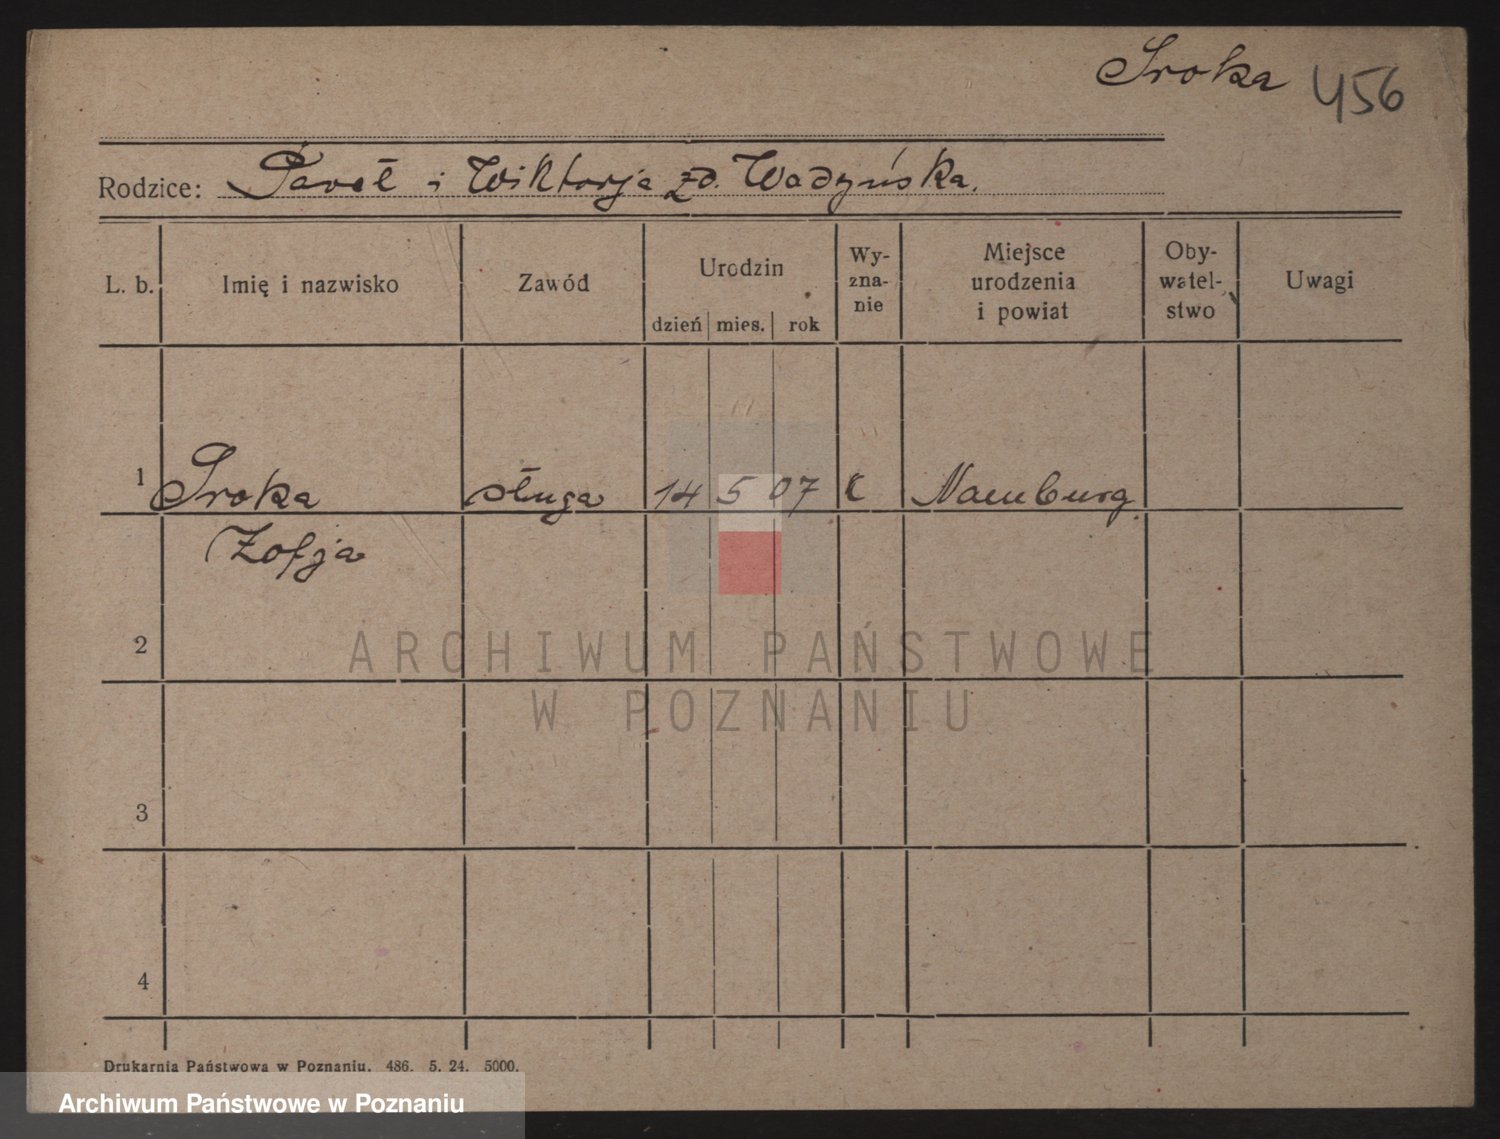 Sroka 456
Rodzice: Paweł i Wiktorja zd. Wadzyńska.
L. b. Imię i nazwisko Zawód Urodzin dzień mies. rok Wy-zna-nie Miejsce urodzenia i powiat Oby-watel-stwo Uwagi
1 Sroka sługa 14 5 07 k Naumburg
Zofja
2
ARCHIWUM PAŃSTWOWE
W POZNANIU
3
4
Drukarnia Państwowa w Poznaniu. 486. 5. 24. 5000.
Archiwum Państwowe w Poznaniu